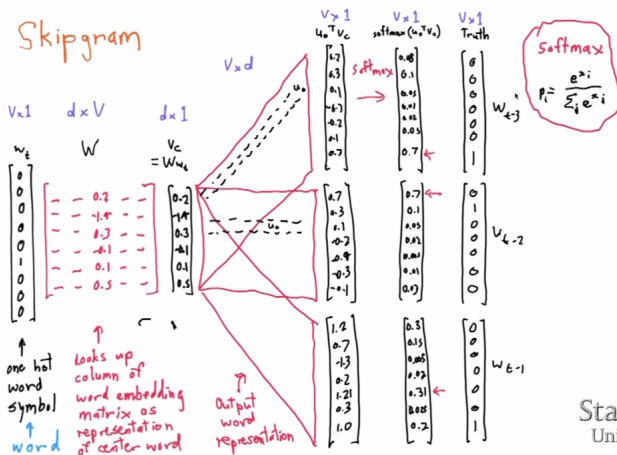 Skipgram
V×1
d×V
d×1
V×d
V×1
V×1
V×1
w_t
W
v_c
= W w_t
u_o^T v_c
softmax(u_o^T v_c)
Truth
0
0
0
0
0
1
0
0
0
0.2
-1.4
0.3
-0.1
0.1
0.5
0.2
-1.4
0.3
-0.1
0.1
0.5
u_o
u_o
softmax
0.2
0.3
0.1
-0.2
0.1
0.7
0.1
0.05
0.02
0.05
0.7
0
0
0
0
0
0
1
w_t-3
0.7
0.3
0.1
-0.2
-0.4
-0.3
-0.1
0.7
0.1
0.05
0.02
0.01
0.03
0
1
0
0
0
0
0
w_t-2
1.2
0.7
-1.3
0.2
1.21
0.3
1.0
0.3
0.15
0.005
0.02
0.31
0.025
0.2
0
0
0
0
0
0
1
w_t-1
softmax
p_i = e^x_i / Σ_j e^x_j
one hot
word
symbol
word
Looks up
column of
word embedding
matrix as
representation
of center word
Output
word
representation